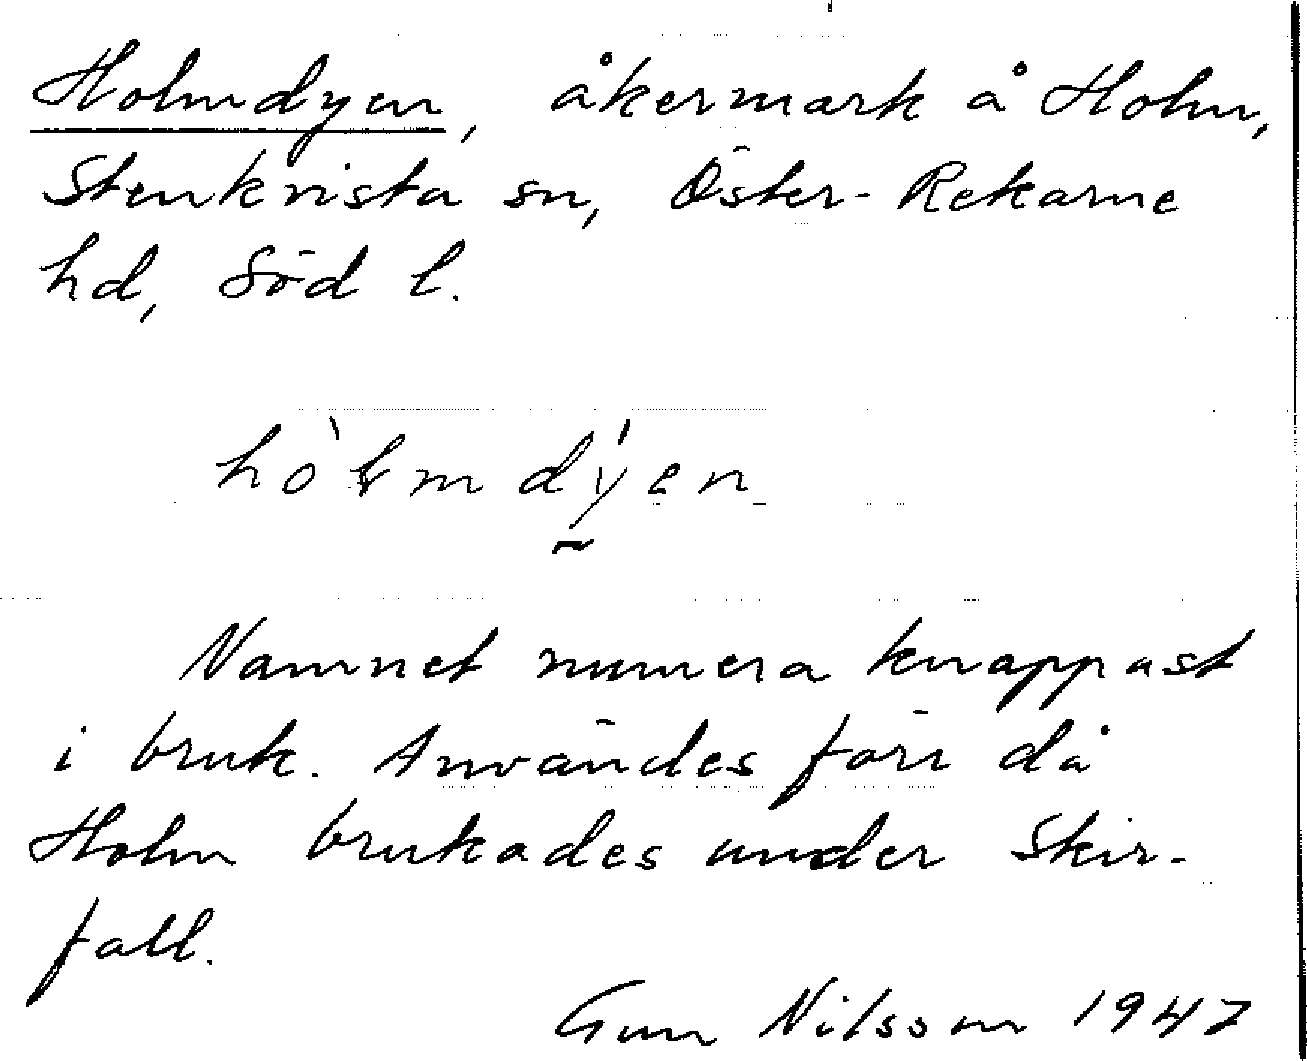 Holmdyen, åkermark å Holm,
Stenkvista sn, Öster-Rekarne
hd, Söd l.
hòlmdýen
Namnet numera knappast
i bruk. Användes förr då
Holm brukades under Skir-
fall.
Gun Nilsson 1947